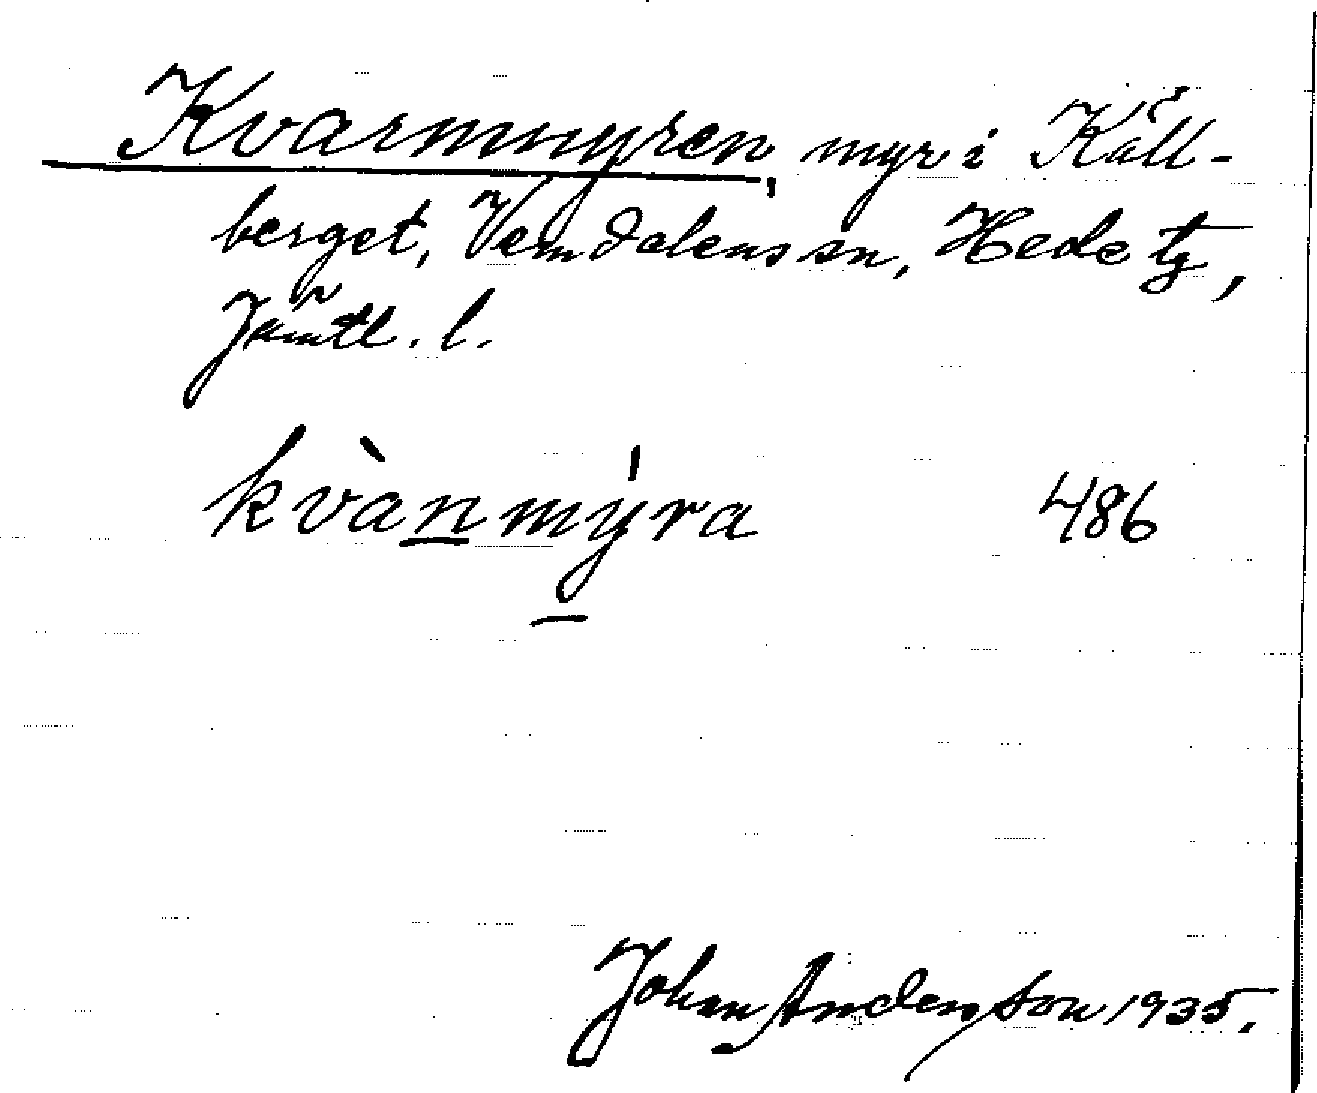 Kvarnmyren, myr i Käll-
berget, Vemdalens sn, Hede tg,
Jämtl. l.
kvànmýra 486
Johan Anderson 1935.